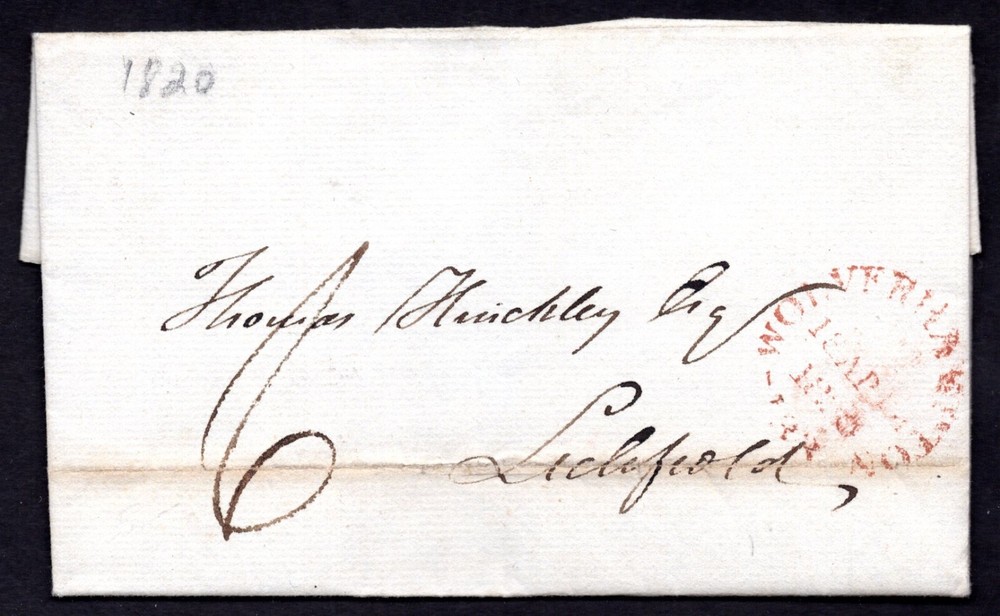 1820
Thomas Hinckley Esq
Lichfield,
6
WOLVERHAMPTON
AP